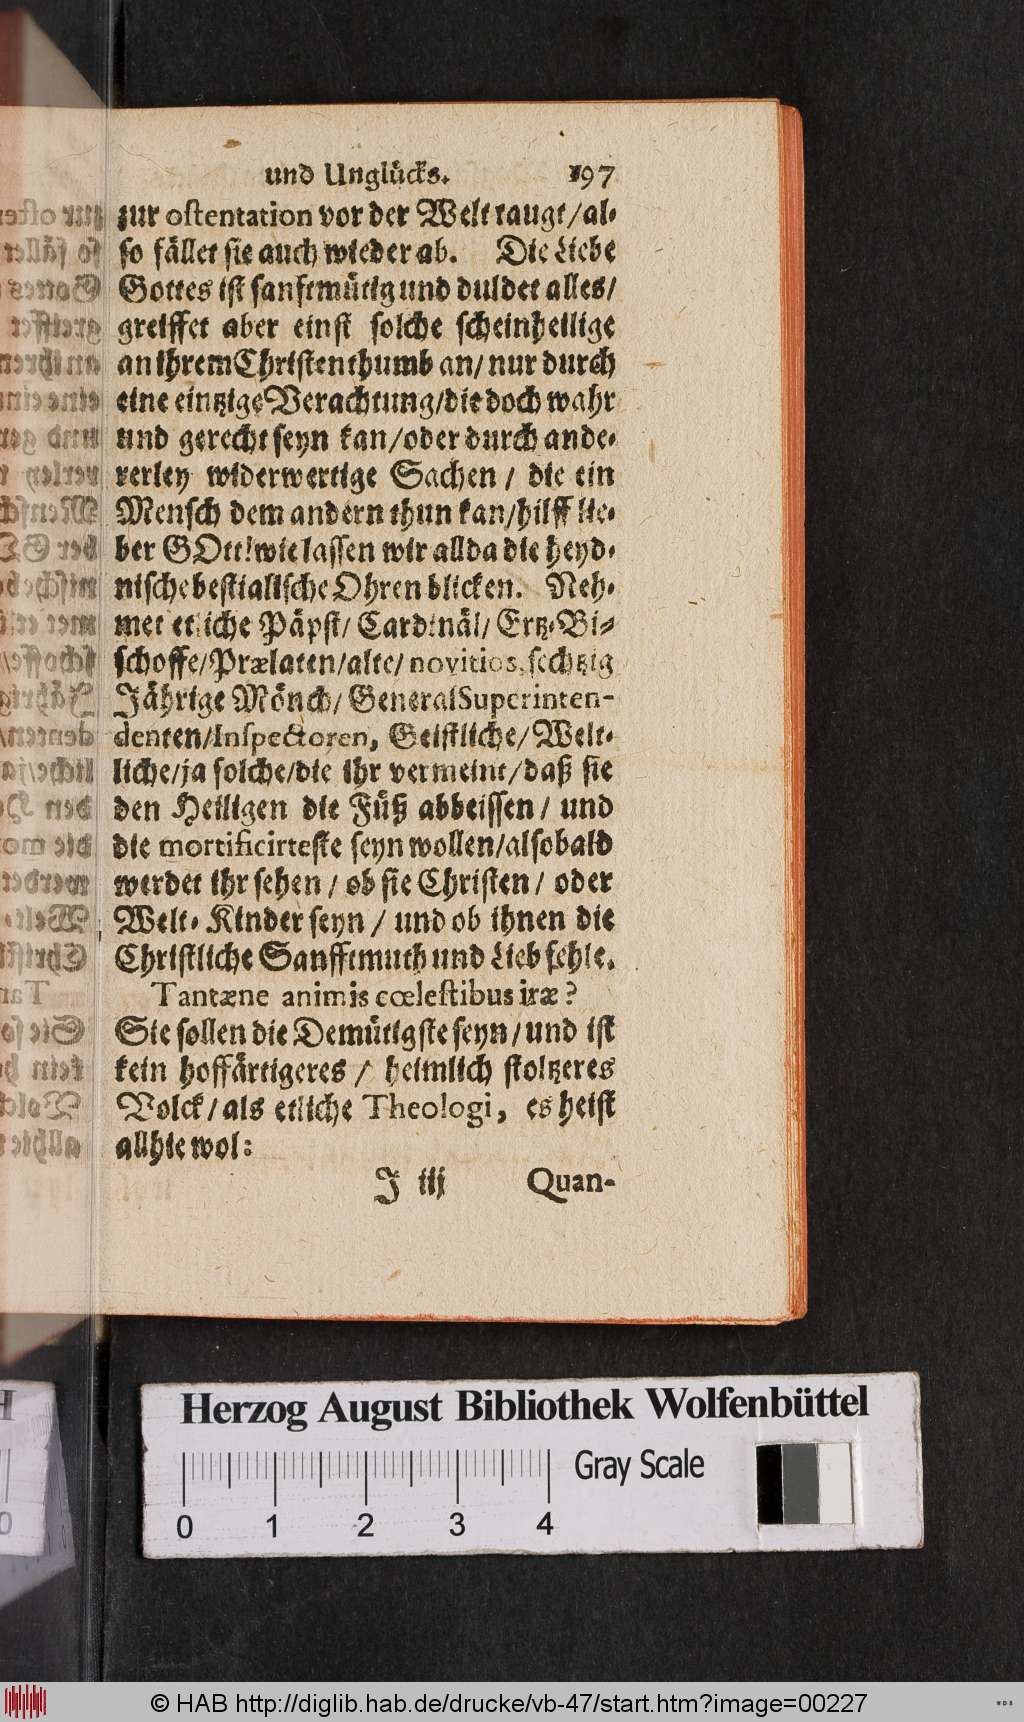 und Unglücks. 197
zur ostentation vor der Welt taugt/al-
so fället sie auch wieder ab. Die Liebe
Gottes ist sanfftmütig und duldet alles/
greiffet aber einst solche scheinheilige
an ihrem Christenthumb an/ nur durch
eine eintzige Verachtung/die doch wahr
und gerecht seyn kan/oder durch ande-
rerley widerwertige Sachen / die ein
Mensch dem andern thun kan/hilff lie-
ber GOtt!wie lassen wir allda die heyd-
nische bestialische Ohren blicken. Neh-
met etliche Päpst/ Cardinäl/ Ertz-Bi-
schoffe/Prælaten/alte/ novitios, sechtzig
Jährige Mönch/ General Superinten-
denten/Inspectoren, Geistliche/ Welt-
liche/ja solche/die ihr vermeint/daß sie
den Heiligen die Füß abbeissen / und
die mortificirteste seyn wollen/alsobald
werdet ihr sehen / ob sie Christen / oder
Welt-Kinder seyn / und ob ihnen die
Christliche Sanfftmuth und Lieb fehle.
Tantæne animis cœlestibus iræ?
Sie sollen die Demütigste seyn/und ist
kein hoffärtigeres / heimlich stoltzeres
Volck/als etliche Theologi, es heist
allhie wol:
J iij Quan-
Herzog August Bibliothek Wolfenbüttel
Gray Scale
0 1 2 3 4
© HAB http://diglib.hab.de/drucke/vb-47/start.htm?image=00227